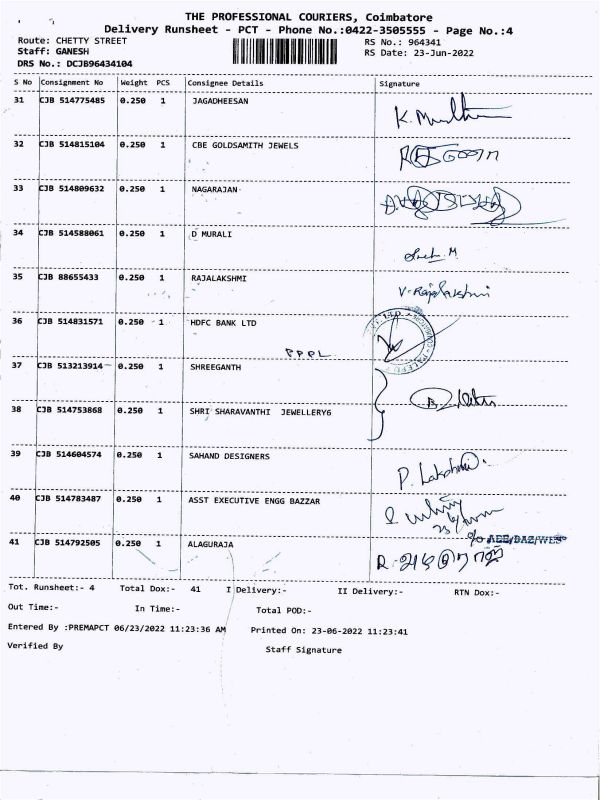 THE PROFESSIONAL COURIERS, Coimbatore
Delivery Runsheet - PCT - Phone No.:0422-3505555 - Page No.:4
Route: CHETTY STREET RS No.: 964341
Staff: GANESH RS Date: 23-Jun-2022
DRS No.: DCJB96434104
S No Consignment No Weight PCS Consignee Details Signature
31 CJB 514775485 0.250 1 JAGADHEESAN
32 CJB 514815104 0.250 1 CBE GOLDSAMITH JEWELS
33 CJB 514809632 0.250 1 NAGARAJAN
34 CJB 514588061 0.250 1 D MURALI
35 CJB 88655433 0.250 1 RAJALAKSHMI V-Rajalakshmi
36 CJB 514831571 0.250 1 HDFC BANK LTD
PPPL
37 CJB 513213914 0.250 1 SHREEGANTH
38 CJB 514753868 0.250 1 SHRI SHARAVANTHI JEWELLERY6
39 CJB 514604574 0.250 1 SAHAND DESIGNERS P. Lakshmi.
40 CJB 514783487 0.250 1 ASST EXECUTIVE ENGG BAZZAR
O/o AEE/BAZ/WEST
41 CJB 514792505 0.250 1 ALAGURAJA
Tot. Runsheet:- 4 Total Dox:- 41 I Delivery:- II Delivery:- RTN Dox:-
Out Time:- In Time:- Total POD:-
Entered By :PREMAPCT 06/23/2022 11:23:36 AM Printed On: 23-06-2022 11:23:41
Verified By Staff Signature